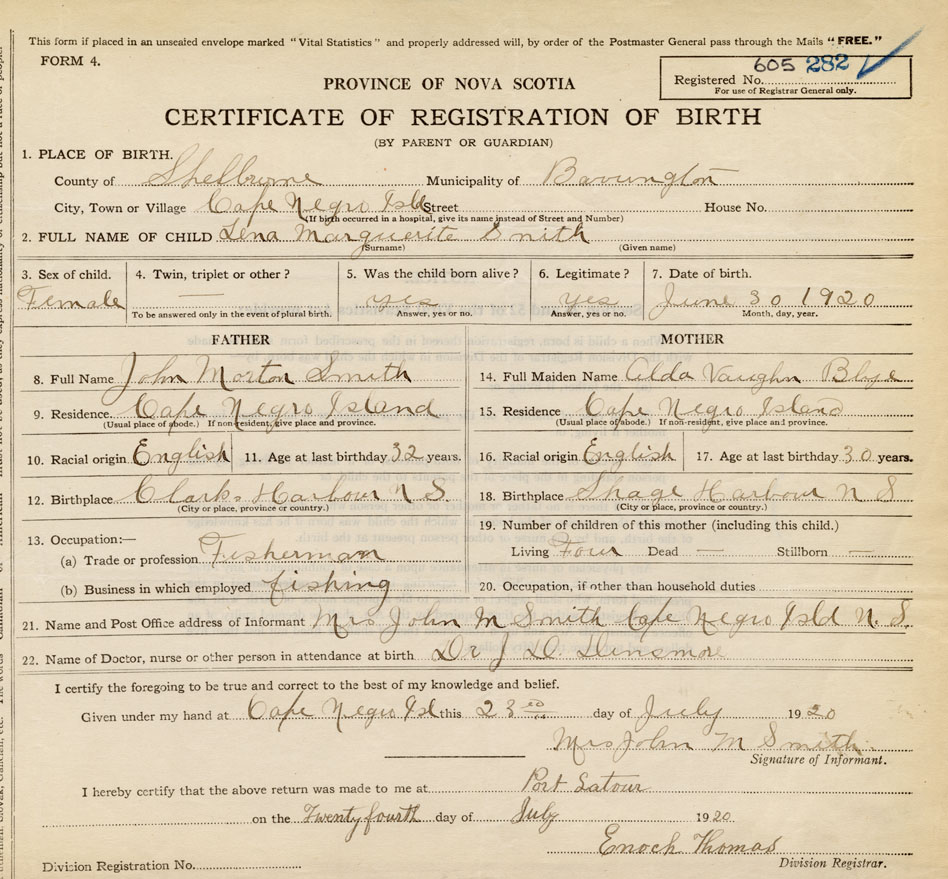 This form if placed in an unsealed envelope marked "Vital Statistics" and properly addressed will, by order of the Postmaster General pass through the Mails "FREE."
FORM 4.
605 282
Registered No.
For use of Registrar General only.
PROVINCE OF NOVA SCOTIA
CERTIFICATE OF REGISTRATION OF BIRTH
(BY PARENT OR GUARDIAN)
1. PLACE OF BIRTH.
County of Shelburne Municipality of Barrington
City, Town or Village Cape Negro Isld Street House No.
(If birth occurred in a hospital, give its name instead of Street and Number)
2. FULL NAME OF CHILD Lena Marguerite Smith
(Surname) (Given name)
3. Sex of child. 4. Twin, triplet or other? 5. Was the child born alive? 6. Legitimate? 7. Date of birth.
Female — yes yes June 30 1920
To be answered only in the event of plural birth. Answer, yes or no. Answer, yes or no. Month, day, year.
FATHER
8. Full Name John Morton Smith
9. Residence. Cape Negro Island
(Usual place of abode.) If non-resident, give place and province.
10. Racial origin English 11. Age at last birthday 32 years.
12. Birthplace Clarks Harbour N S.
(City or place, province or country.)
13. Occupation:—
(a) Trade or profession Fisherman
(b) Business in which employed fishing
MOTHER
14. Full Maiden Name Alda Vaughn
15. Residence Cape Negro Island
(Usual place of abode.) If non-resident, give place and province.
16. Racial origin English 17. Age at last birthday 30 years.
18. Birthplace Shag Harbour N S
(City or place, province or country.)
19. Number of children of this mother (including this child.)
Living Four Dead — Stillborn —
20. Occupation, if other than household duties
21. Name and Post Office address of Informant Mrs John M Smith Cape Negro Isld N. S.
22. Name of Doctor, nurse or other person in attendance at birth Dr J D. Densmore
I certify the foregoing to be true and correct to the best of my knowledge and belief.
Given under my hand at Cape Negro Isl this 23 day of July 1920
Mrs John M Smith
Signature of Informant.
I hereby certify that the above return was made to me at Port Latour
on the Twenty fourth day of July 1920.
Enoch Thomas
Division Registration No. Division Registrar.